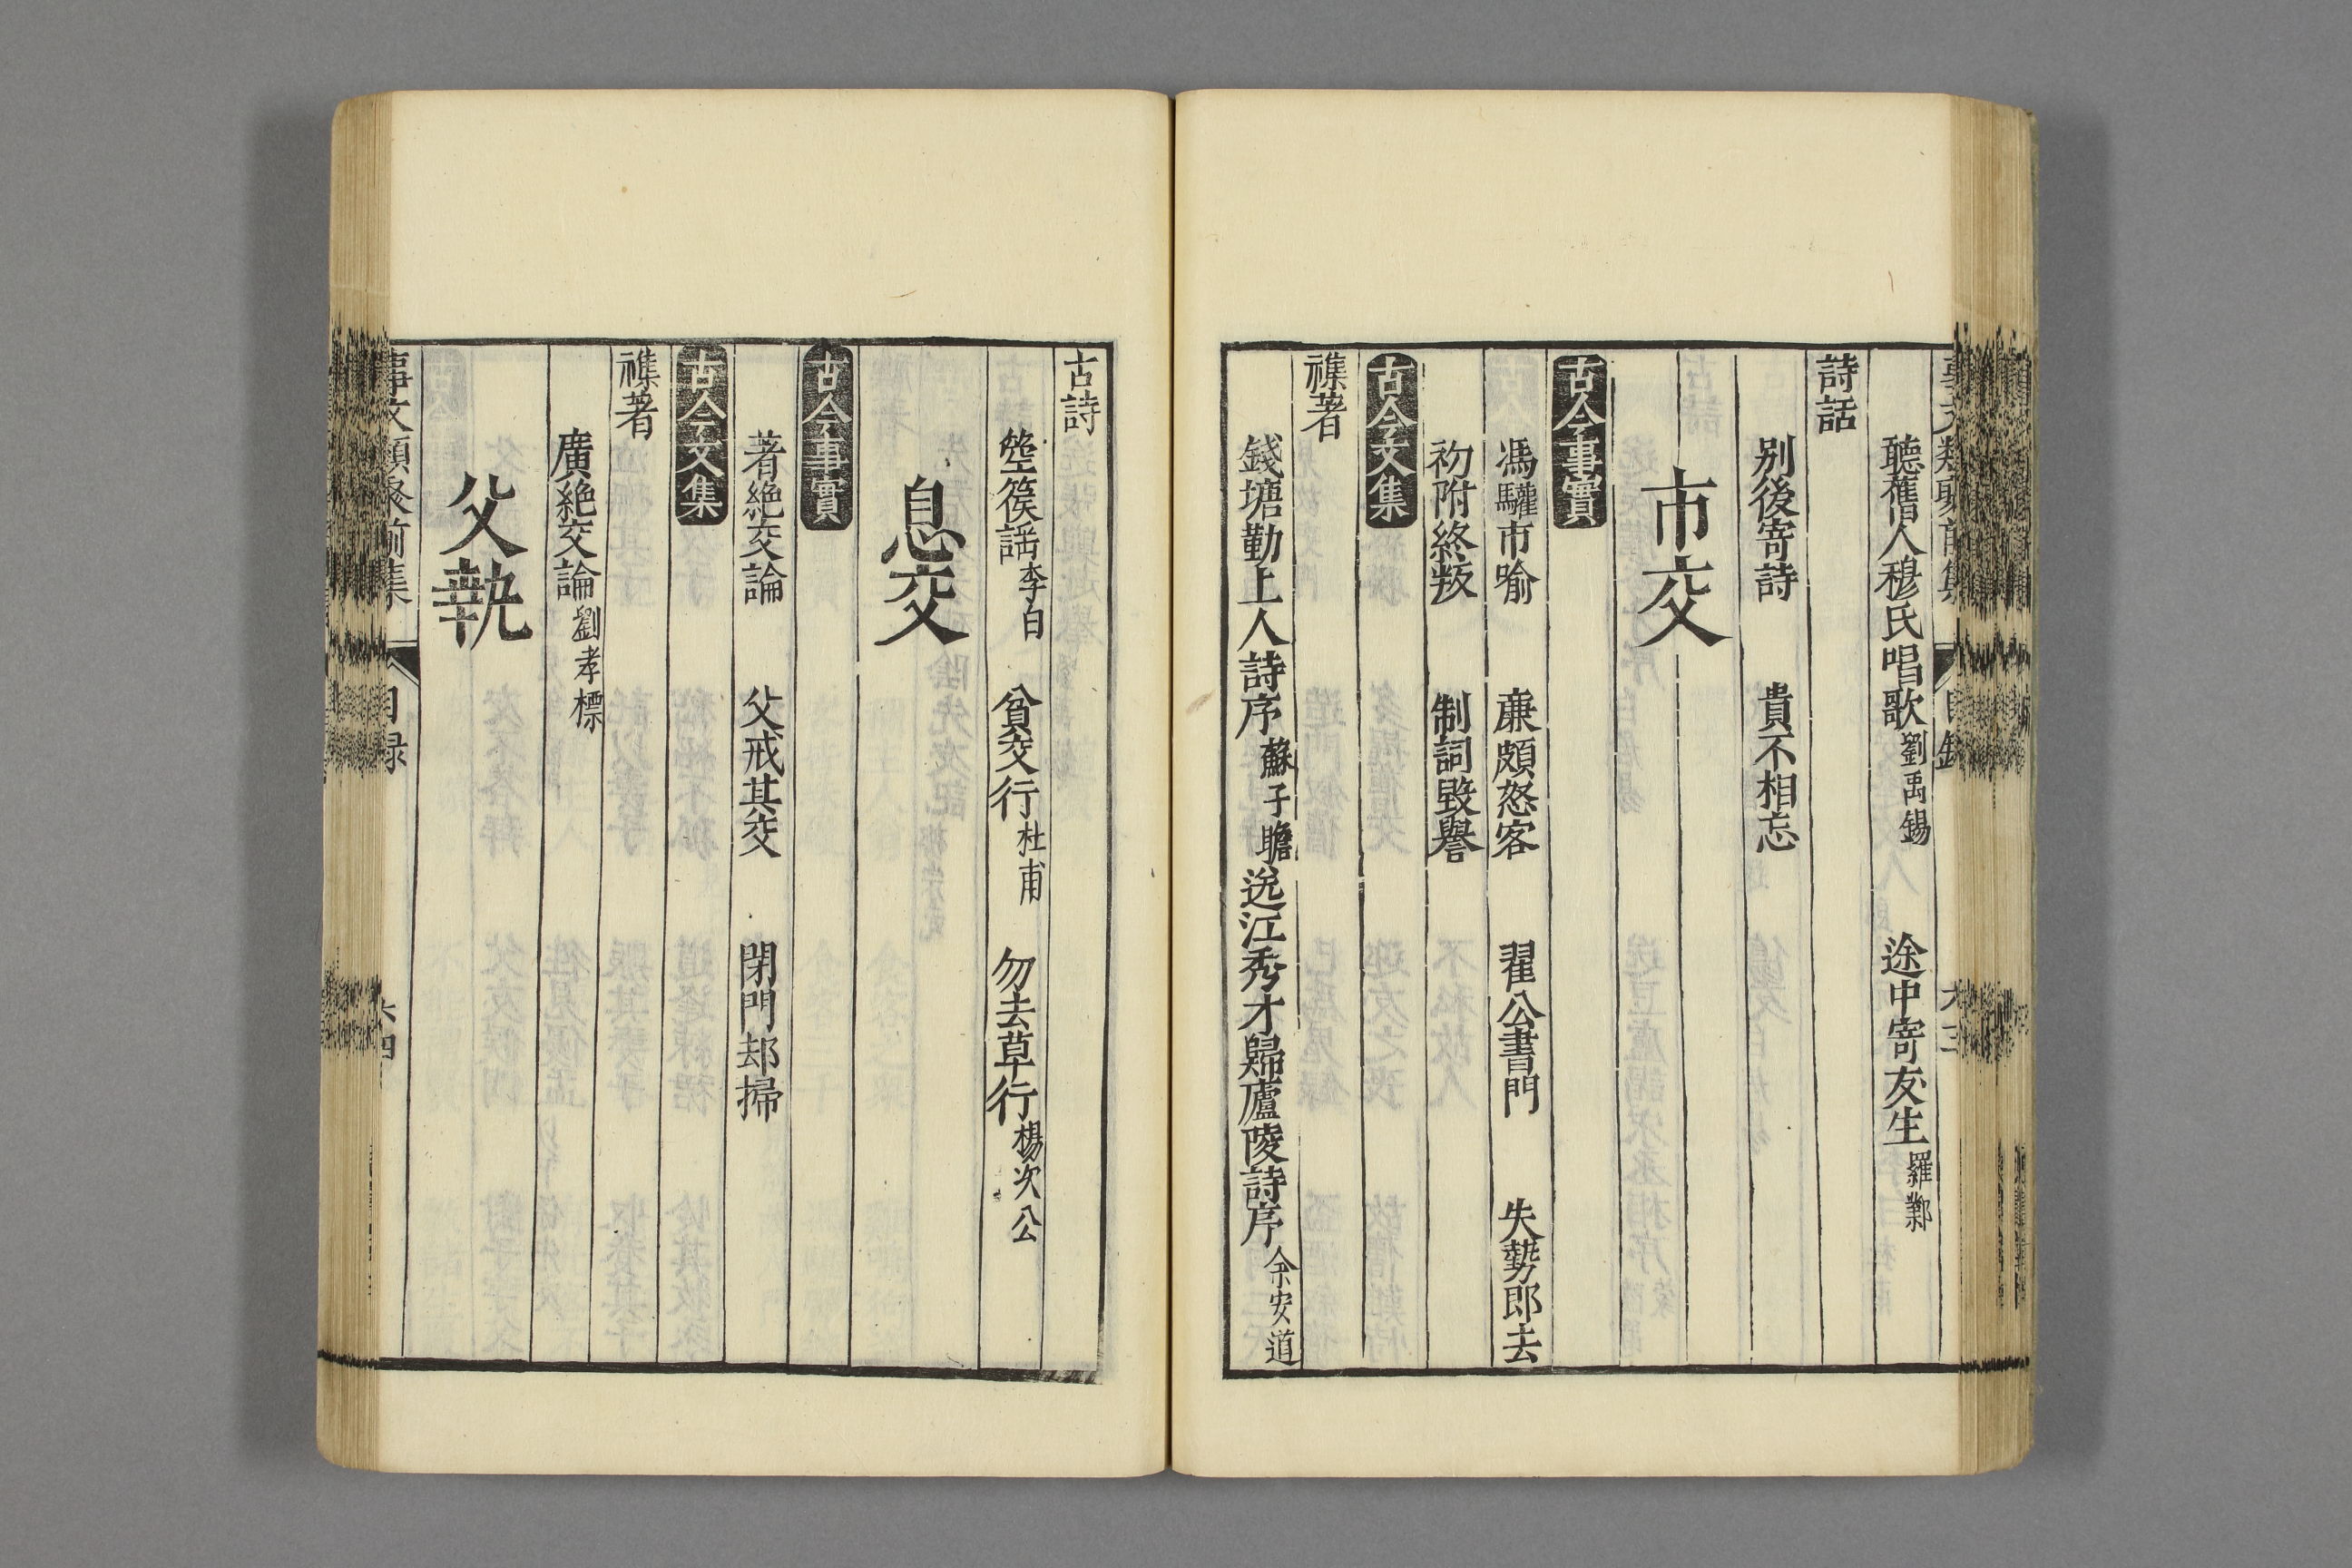 聽舊人穆氏唱歌劉禹錫 途中寄友生羅鄴
詩話
别後寄詩 貴不相忘
市交
古今事實
馮驩市喻 亷頗怒客 翟公書門 失勢郎去
初附終叛 制詞毀譽
古今文集
襍著
錢塘勤上人詩序蘇子瞻 送江秀才歸廬陵詩序余安道
古詩
箜篌謡李白 貧交行杜甫 勿去草行楊次公
息交
古今事實
著絶交論 父戒其交 閉門却掃
古今文集
襍著
廣絶交論劉孝標
父執
事文類聚前集 目録 六四